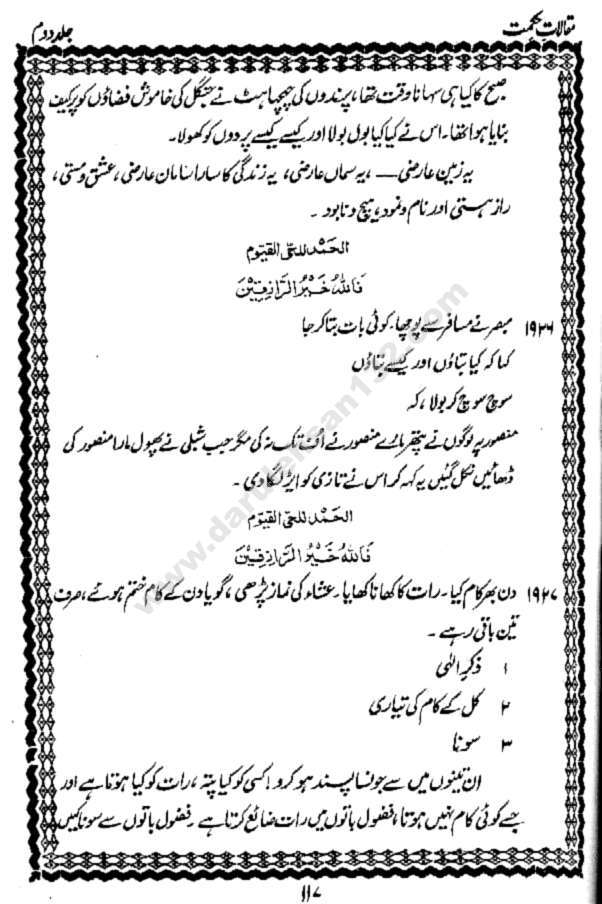 مقالاتِ حکمت
جلد دوم
صبح کا کیا ہی سہانا وقت تھا، پرندوں کی چہچہاہٹ نے جنگل کی خاموش فضاؤں کو پرکیف
بنایا ہوا تھا۔ اس نے کیا کیا بول بولا اور کیسے کیسے پردوں کو کھولا۔
یہ زمین عارضی —، یہ سماں عارضی، یہ زندگی کا سارا سامان عارضی، عشق و مستی،
رازِ ہستی اور نام و نمود، ہیچ و نابود ۔
الحمد للحی القیوم
فَاللهُ خَيْرُ الرَّازِقِيْنَ
۱۹۲۶ مبصر نے مسافر سے پوچھا۔ کوئی بات بتا کر جا
کہا کہ کیا بتاؤں اور کیسے بتاؤں
سوچ سوچ کر بولا، کہ
منصور پہ لوگوں نے پتھر مارے منصور نے اُف تک نہ کی مگر جب شبلی نے پھول مارا منصور کی
ڈھائیں نکل گئیں یہ کہہ کر اس نے تازی کو ایڑ لگا دی ۔
الحمد للحی القیوم
فَاللهُ خَيْرُ الرَّازِقِيْنَ
۱۹۲۷ دن بھر کام کیا۔ رات کا کھانا کھایا۔ عشاء کی نماز پڑھی، گویا دن کے کام ختم ہوئے، صرف
تین باقی رہے ۔
۱ ذکرِ الٰہی
۲ کل کے کام کی تیاری
۳ سونا
ان تینوں میں سے جونسا پسند ہو کرو! کسی کو کیا پتہ، رات کو کیا ہوتا ہے اور
جسے کوئی کام نہیں ہوتا، فضول باتوں میں رات ضائع کرتا ہے۔ فضول باتوں سے سونا کہیں
۱۱۷
www.darulehsan132.com